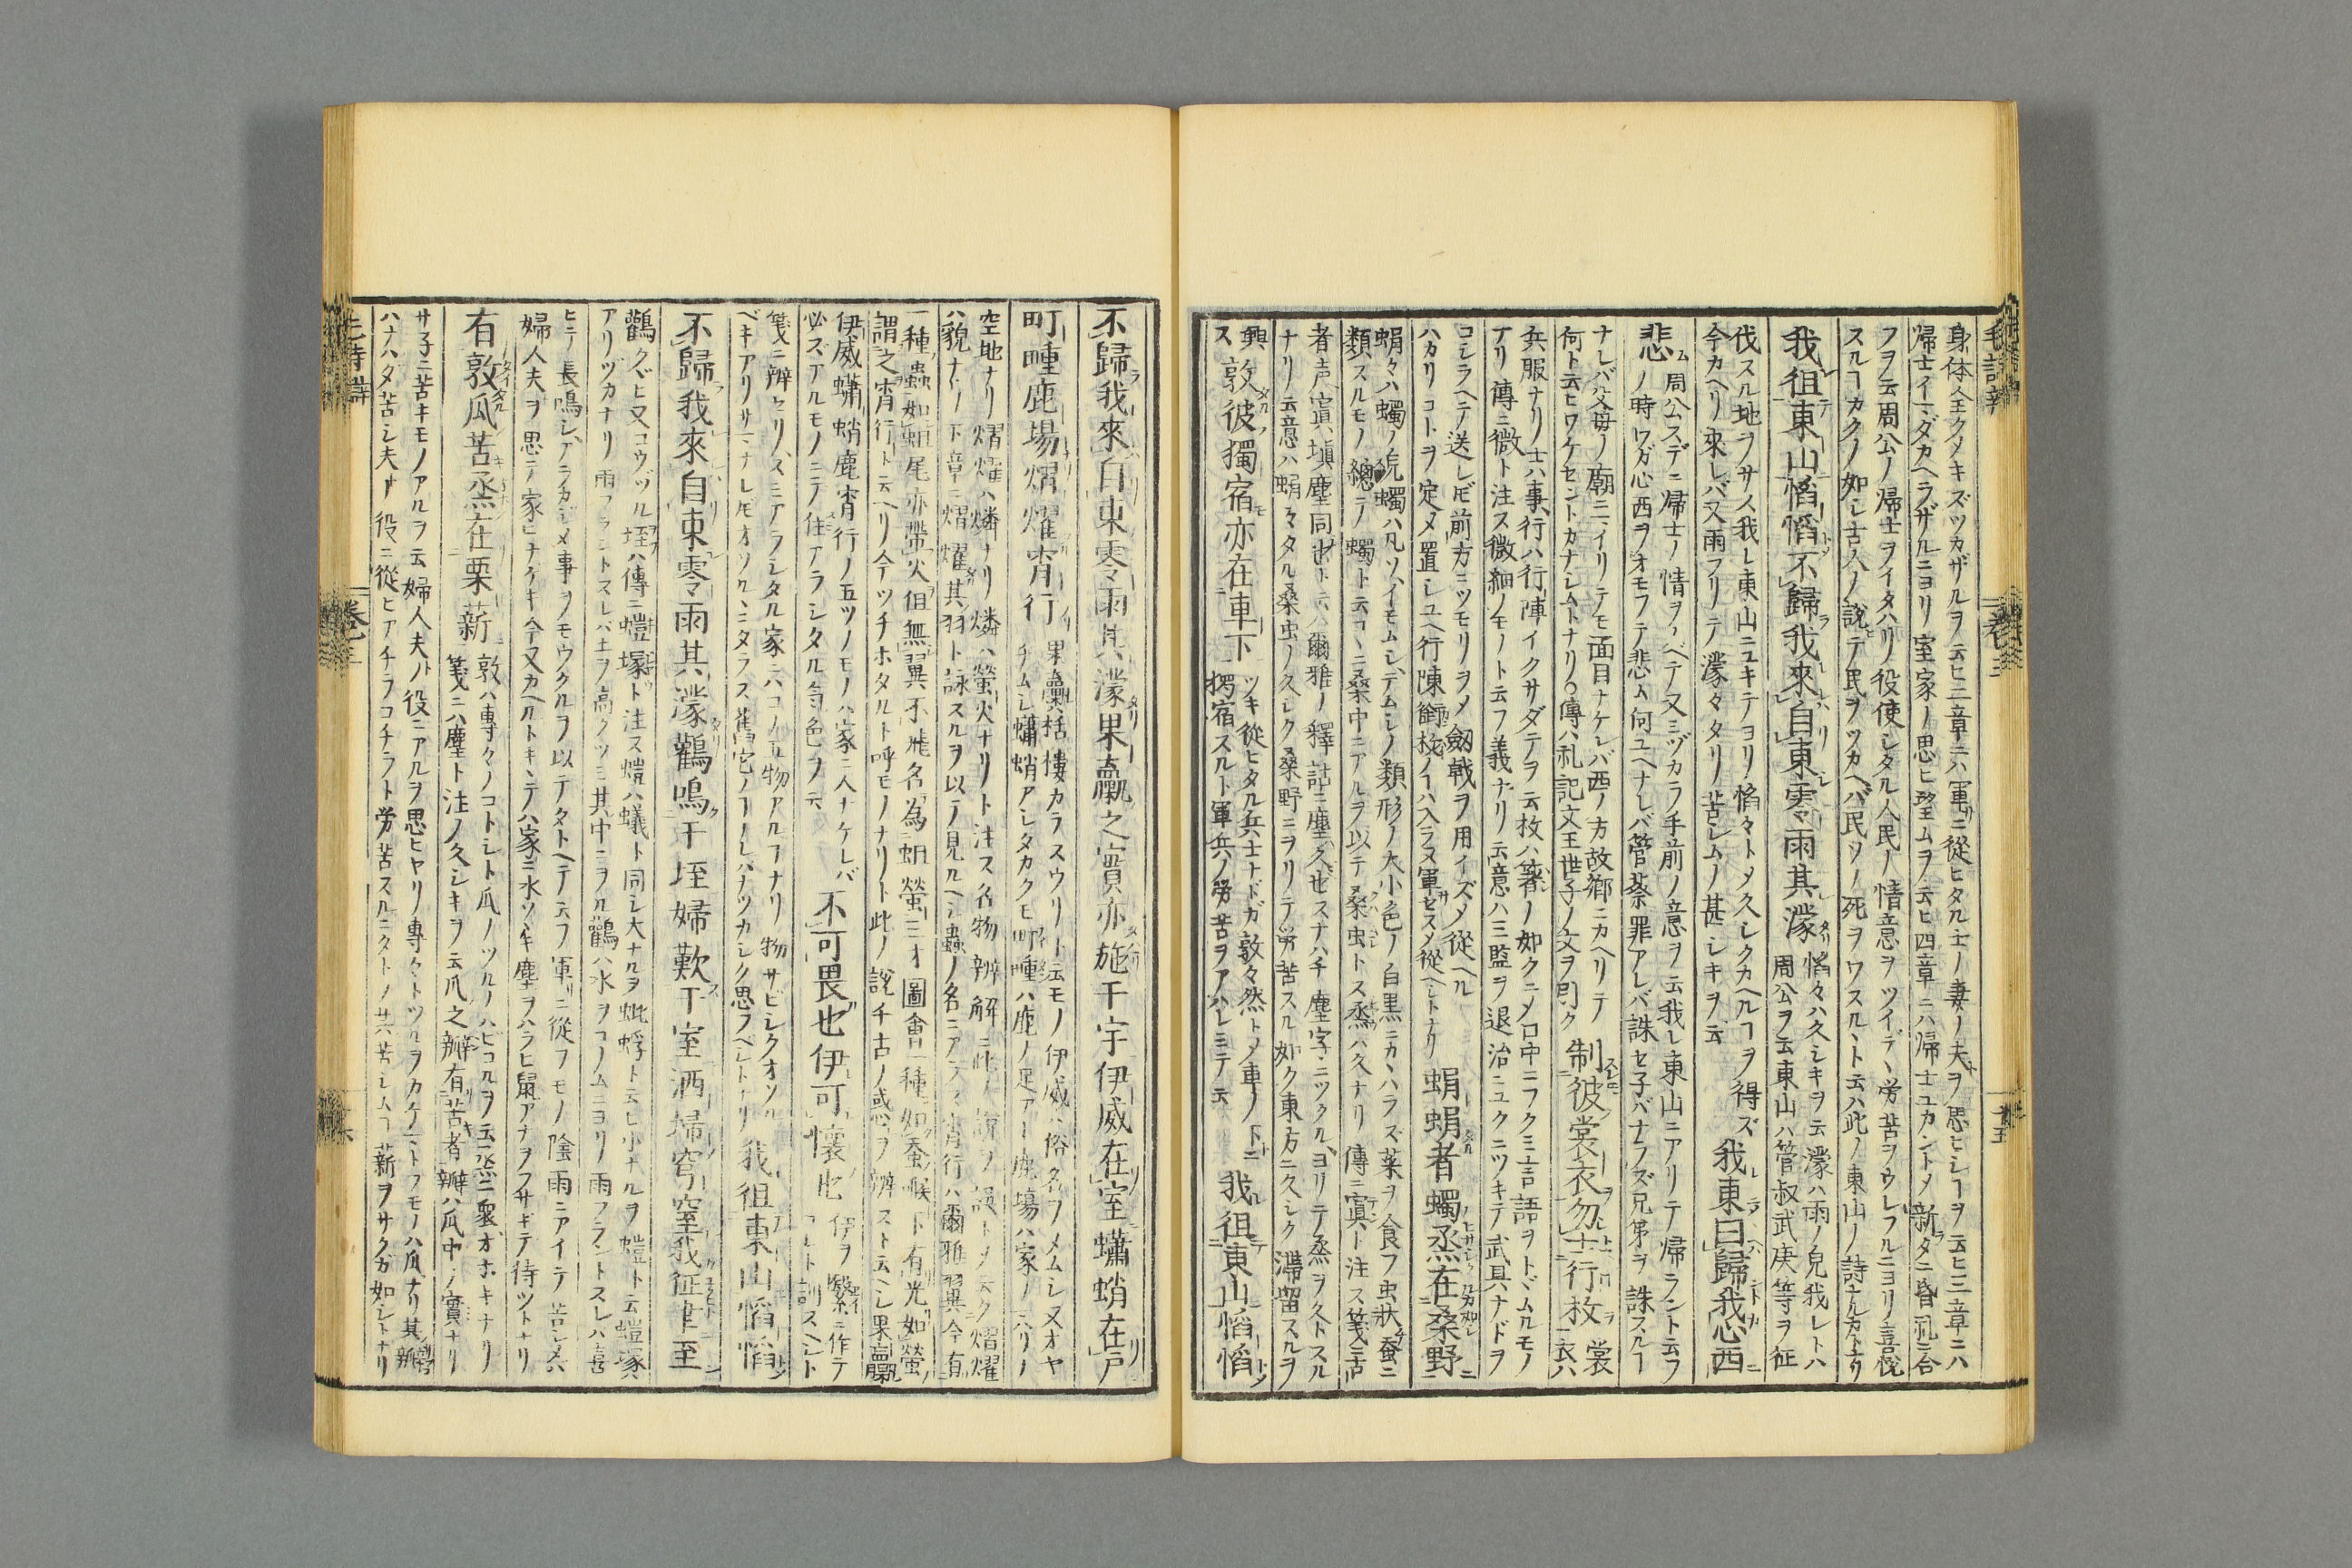 身体全クメキズツカザルヲ云ヒ二章ニハ軍ニ從ヒタル士ノ妻ノ夫ヲ思ヒシヿヲ云ヒ三章ニハ
帰士イマダカヘラザルニヨリ室家ノ思ヒ望ムヲ云ヒ四章ニハ帰士ユカントメ新タニ昏礼ニ合
フヲ云周公ノ帰士ヲイタハリ役使シタル人民ノ情意ヲツイデ、労苦ヲウレフルニヨリ喜悅
スルヿカクノ如シ古人ノ説テ民ヲツカヘバ民ソノ死ヲワスル、ト云ハ此ノ東山ノ詩ナルカトナリ
我徂東山慆慆不歸我來自東零雨其濛
慆々ハ久シキヲ云濛ハ雨ノ皃我レトハ
周公ヲ云東山ハ管叔武庚等ヲ征
伐スル地ヲサス我レ東山ニユキテヨリ慆々トメ久シクカヘルヿヲ得ズ
今カヘリ來レバ又雨フリテ濛々タリ苦シムノ甚シキヲ云
我東曰歸我心西
悲
周公スデニ帰士ノ情ヲノベテ又ミヅカラ手前ノ意ヲ云我レ東山ニアリテ帰ラント云フ
ノ時ワガ心西ヲオモフテ悲ム何ユヘナレバ管蔡罪アレバ誅セ子バナラズ兄弟ヲ誅スルヿ
ナレバ父母ノ廟ニイリテモ面目ナケレバ西ノ方故鄉ニカヘリテ
何ト云ヒワケセントカナシムトナリ○傳ハ礼記文王世子ノ文ヲ引ク
制彼裳衣勿士行枚
裳
衣ハ
兵服ナリ士ハ事行ハ行陣イクサダテヲ云枚ハ箸ノ如クニメ口中ニフクミ言語ヲトヾムルモノ
ナリ傳ニ微ト注ス微細ノモノト云フ義ナリ云意ハ三監ヲ退治ニユクニツキテ武具ナドヲ
コシラヘテ送レドモ前方ニツモリヲメ劔戟ヲ用イズメ從ヘル
ハカリコトヲ定メ置シユヘ行陳銜枚ノイハ入ラヌ軍セスメ從ヘシトナリ
蜎蜎者蠋烝在桑野
蜎々ハ蠋ノ皃蠋ハ凡ソイモムシ、デムシノ類形ノ大小色ノ白黒ニカヽハラズ葉ヲ食フ虫狀蚕ニ
類スルモノ總テ蠋ト云コヽニ桑中ニアルヲ以テ桑虫トス烝ハ久ナリ傳ニ寘ト注ス箋ニ古
者声寘塡塵同也ト云ハ爾雅ノ釋詁ニ塵ハ久也スナハチ塵字ニツクルヨリテ烝ヲ久トスル
ナリ云意ハ蜎々タル桑虫ノ久シク桑野ニヲリテ労苦スル如ク東方ニ久シク滞留スルヲ
興
ス
敦彼獨宿亦在車下
ツキ從ヒタル兵士ナドガ敦々然トメ車ノ下ニ
獨宿スルト軍兵ノ労苦ヲアハレミテ云
我徂東山慆慆
不歸我來自東零雨其濛果臝之實亦施于宇伊威在室蠨蛸在戶
町畽鹿場熠燿宵行
果臝括樓カラスウリト云モノ伊威ハ俗名ヲメムシ又オヤ
チムシ蠨蛸アシタカクモ町畽ハ鹿ノ足アト鹿場ハ家ノ
空地ナリ熠燿ハ燐ナリ燐ハ螢火ナリト注ス名物辨解ニ
ハ貌ナドノ下章ニ熠燿其羽ト詠スルヲ以テ見ルヘシ蟲ノ名ニアラス宵行ハ爾雅翼今有
一種蟲如蛆尾亦帶火但無翼不飛名為蛆螢三才圖會一種如蚕喉下有光如螢
謂之宵行ト云ヘリ今ツチホタルト呼モノナリト此ノ説千古ノ惑ヲ辨スト云ヘシ果臝
伊威蠨蛸鹿宵行ノ五ツノモノハ家ニ人ナケレバ
必ズアルモノニテ住アラシタル気色ヲ云
不可畏也伊可懷也
伊ヲ繄ニ作テ
箋ニ辨セリスミアラシタル家ニハコノ五物アルヿナリ物サビシクオソル
ベキアリサマナレドモオソルヽニタラス舊宅ノヿナレバナツカシク思フヘシトナリ
我徂東山慆慆
不歸我來自東零雨其濛鸛鳴于垤婦歎于室洒埽穹窒我征聿至
鸛クビ又コウヅル垤ハ傳ニ螘塚ト注ス螘ハ蟻ト同シ大ナルヲ蚍蜉ト云ヒ小ナルヲ螘ト云螘塚
アリヅカナリ雨フラントスレバ土ヲ高クツミ其中ニヲル鸛ハ水ヲコノムニヨリ雨フラントスレハ喜
ヒテ長鳴シアラカジメ事ヲノモウクルヲ以テタトヘテ云フ軍ニ從フモノ陰雨ニアイテ苦シメハ
婦人夫ヲ思テ家ニナケキ今又カヘルトキヽテハ家ニ水ソヽキ塵ヲハラヒ鼠アナヲフサギテ待ツトナリ
有敦瓜苦烝在栗薪
敦ハ專々ノコトシト瓜ノツルノハビコルヲ云烝ニ衆オホキナリ
箋ニハ塵ト注ノ久シキヲ云瓜之瓣有苦者瓣ハ瓜中ノ實ナリ
サ子ニ苦キモノアルヲ云婦人夫ノ役ニアルヲ思ヒヤリ專々トツルヲカケマトフモノハ瓜ナリ其瓣
ハナハダ苦シ夫ハ役ニ從ヒアチラコチラト労苦スルニタトノ其苦シムヿ薪ヲサクガ如シトナリ